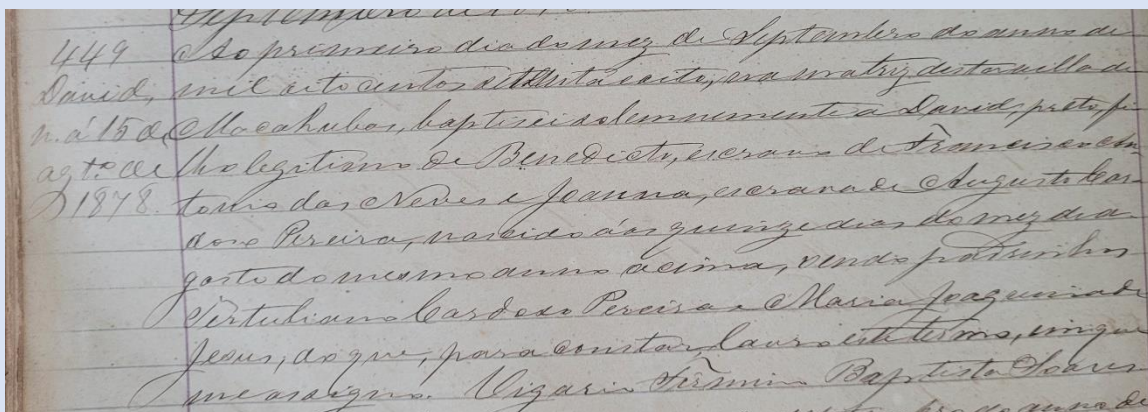 449
David,
n. á 15 de
agto. de
1878.
Septembro de
Ao primeiro dia do mez de Septembro do anno de
mil oito centos e setenta e oito, na matriz desta villa de
Macahubas, baptisei solemnemente a David, preto, fi
lho legitimo de Benedicto, escravo de Francisco An
tonio das Neves e Joanna, escrava de Augusto Car
doso Pereira, nascido áos quinze dias do mez de a
gosto do mesmo anno acima, sendo padrinhos
Tertuliano Cardoso Pereira e Maria Joaquina de
Jesus, do que, para constar, lavro este termo, em que
me assigno. Vigario Firmino Baptista Soares